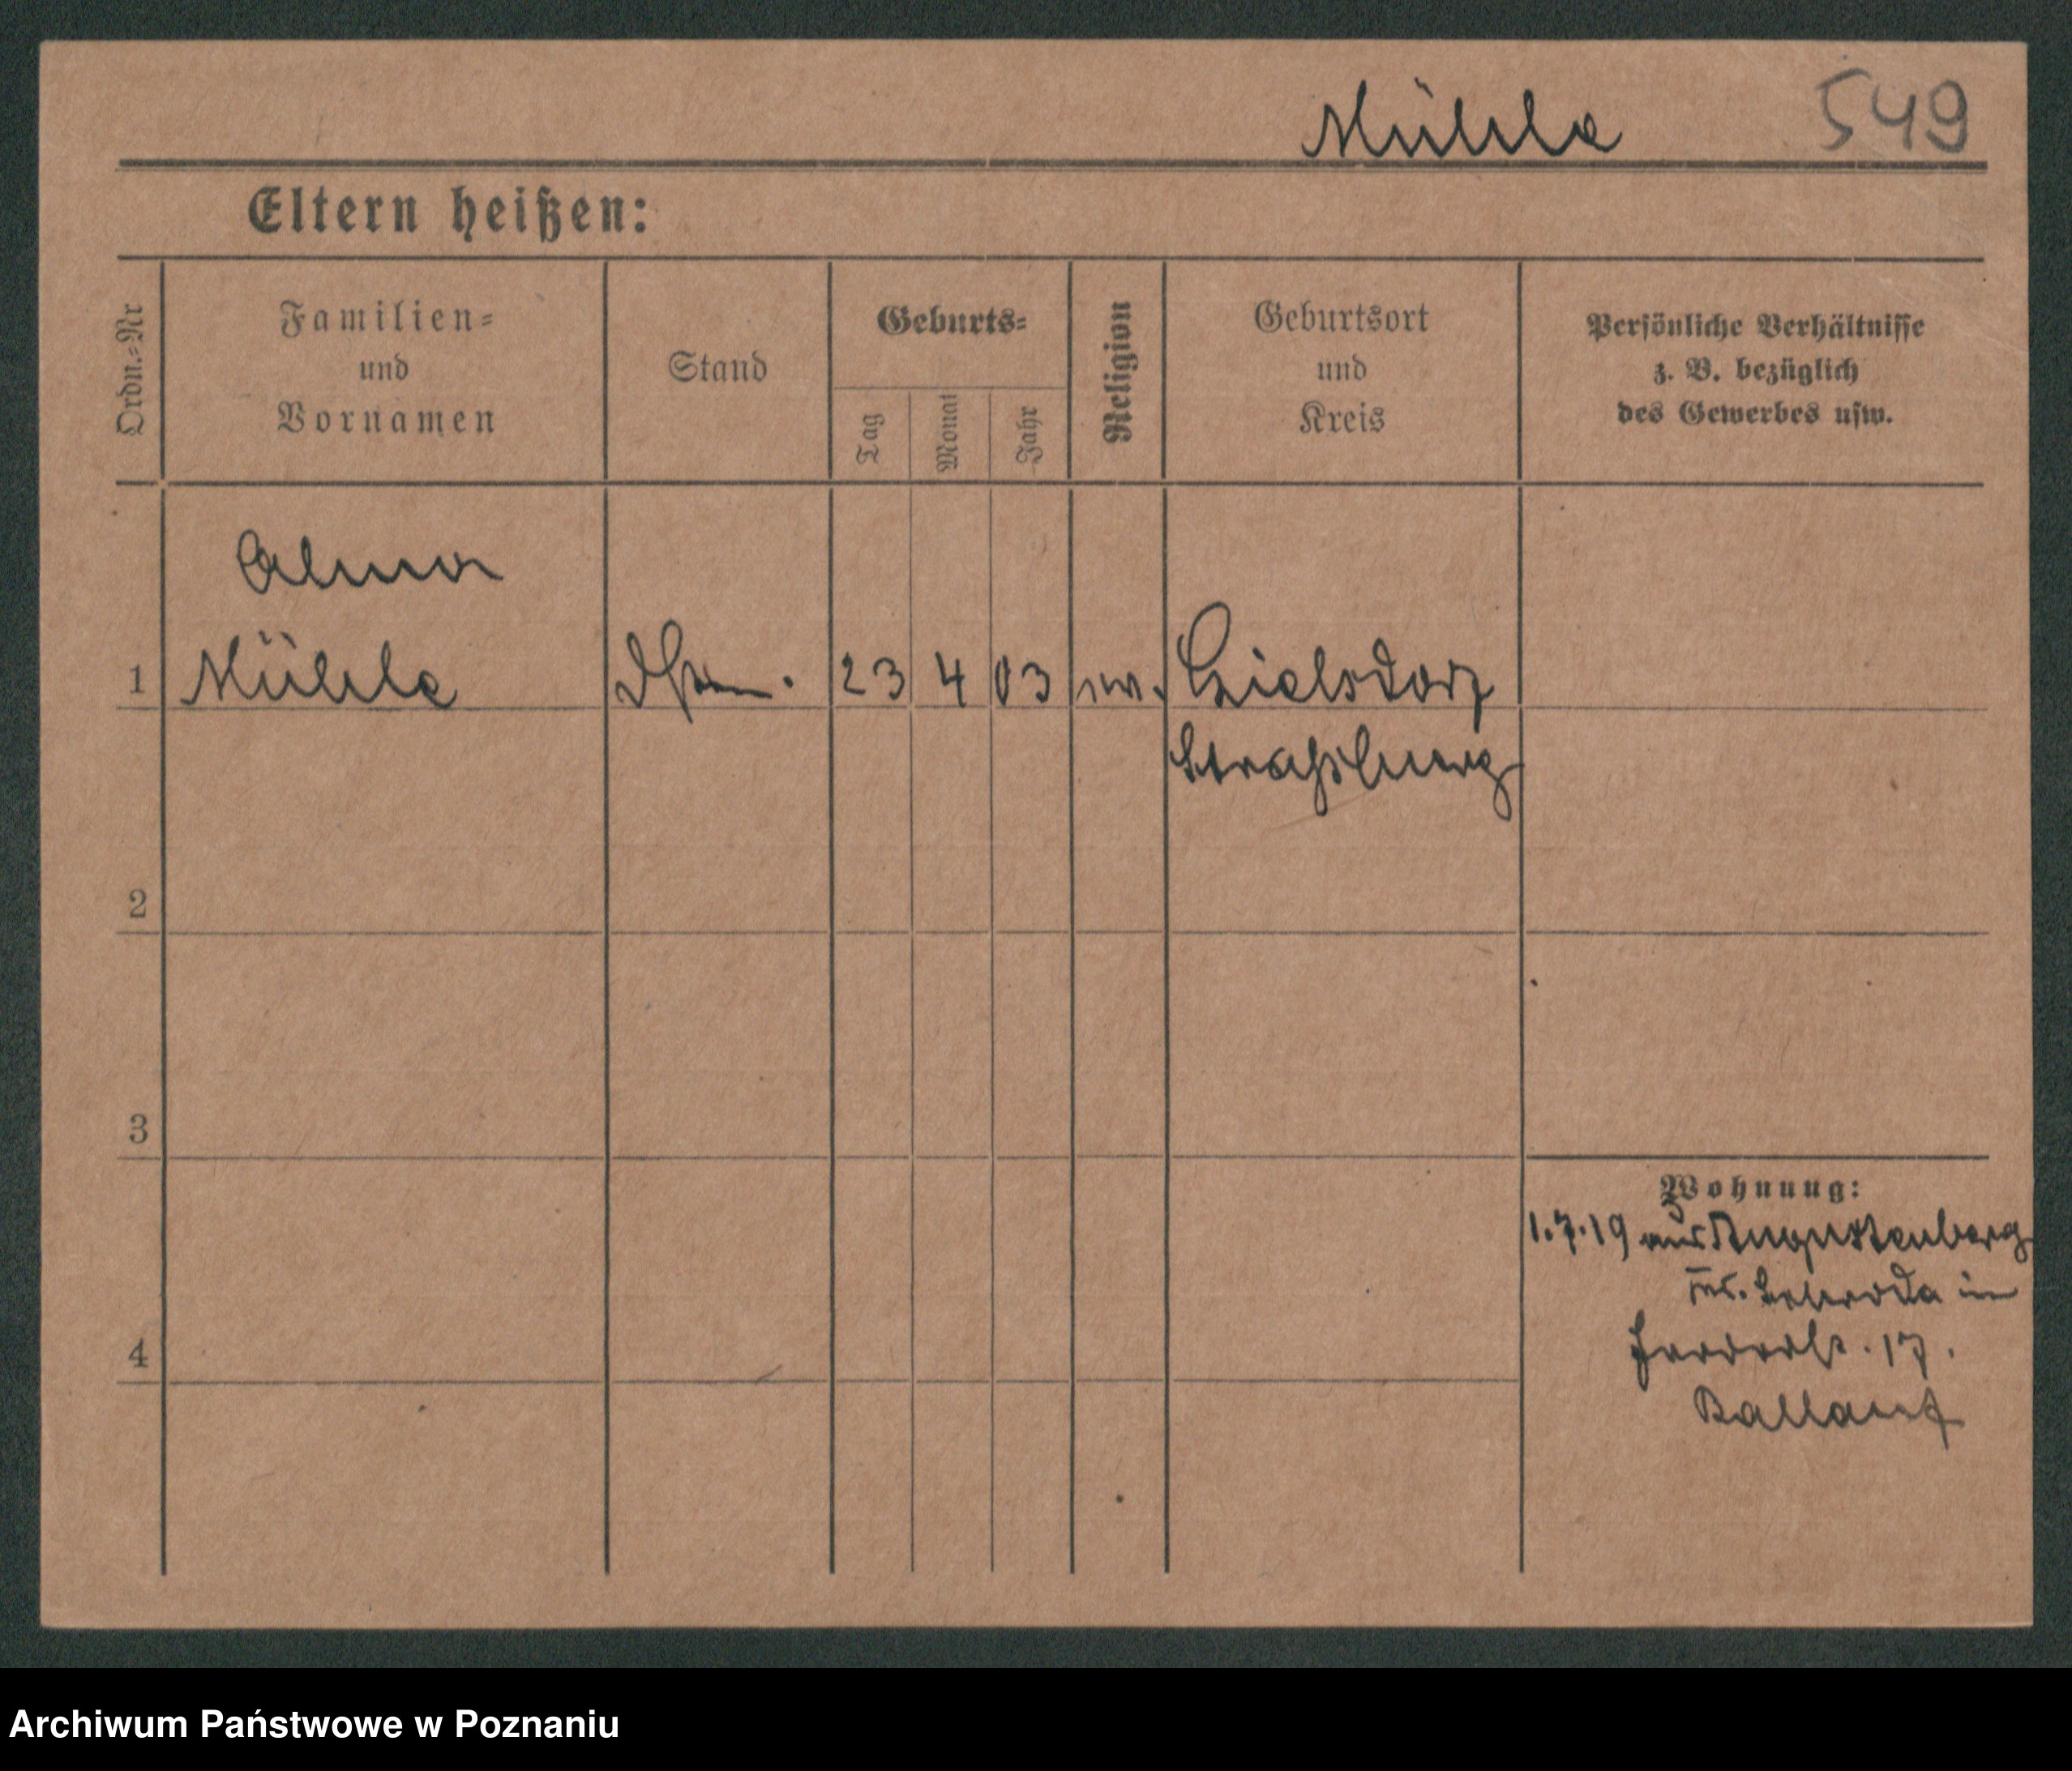 Mühle 549
Eltern heißen:
Ordn.=Nr
Familien=
und
Vornamen
Stand
Geburts=
Tag
Monat
Jahr
Religion
Geburtsort
und
Kreis
Persönliche Verhältnisse
z. B. bezüglich
des Gewerbes usw.
Alma
1 Mühle 23 4 03 ev. Zielsdorf
Straßburg
2
3
Wohnung:
1.7.19 aus Augustenberg
in
4
17.